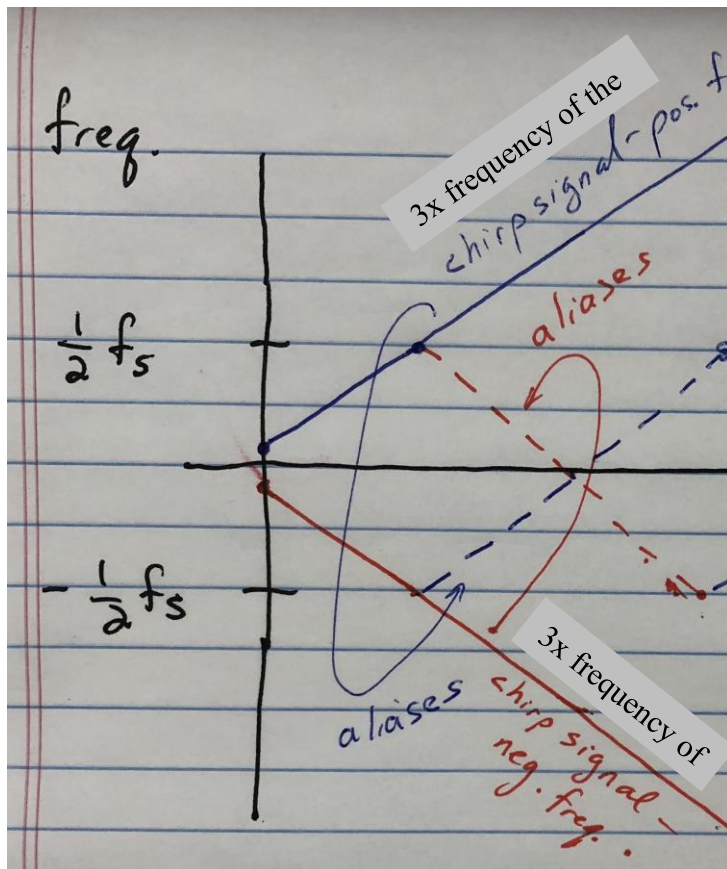 freq.
3x frequency of the
chirp signal - pos. f
aliases
1/2 fs
- 1/2 fs
aliases
3x frequency of
chirp signal -
neg. freq.